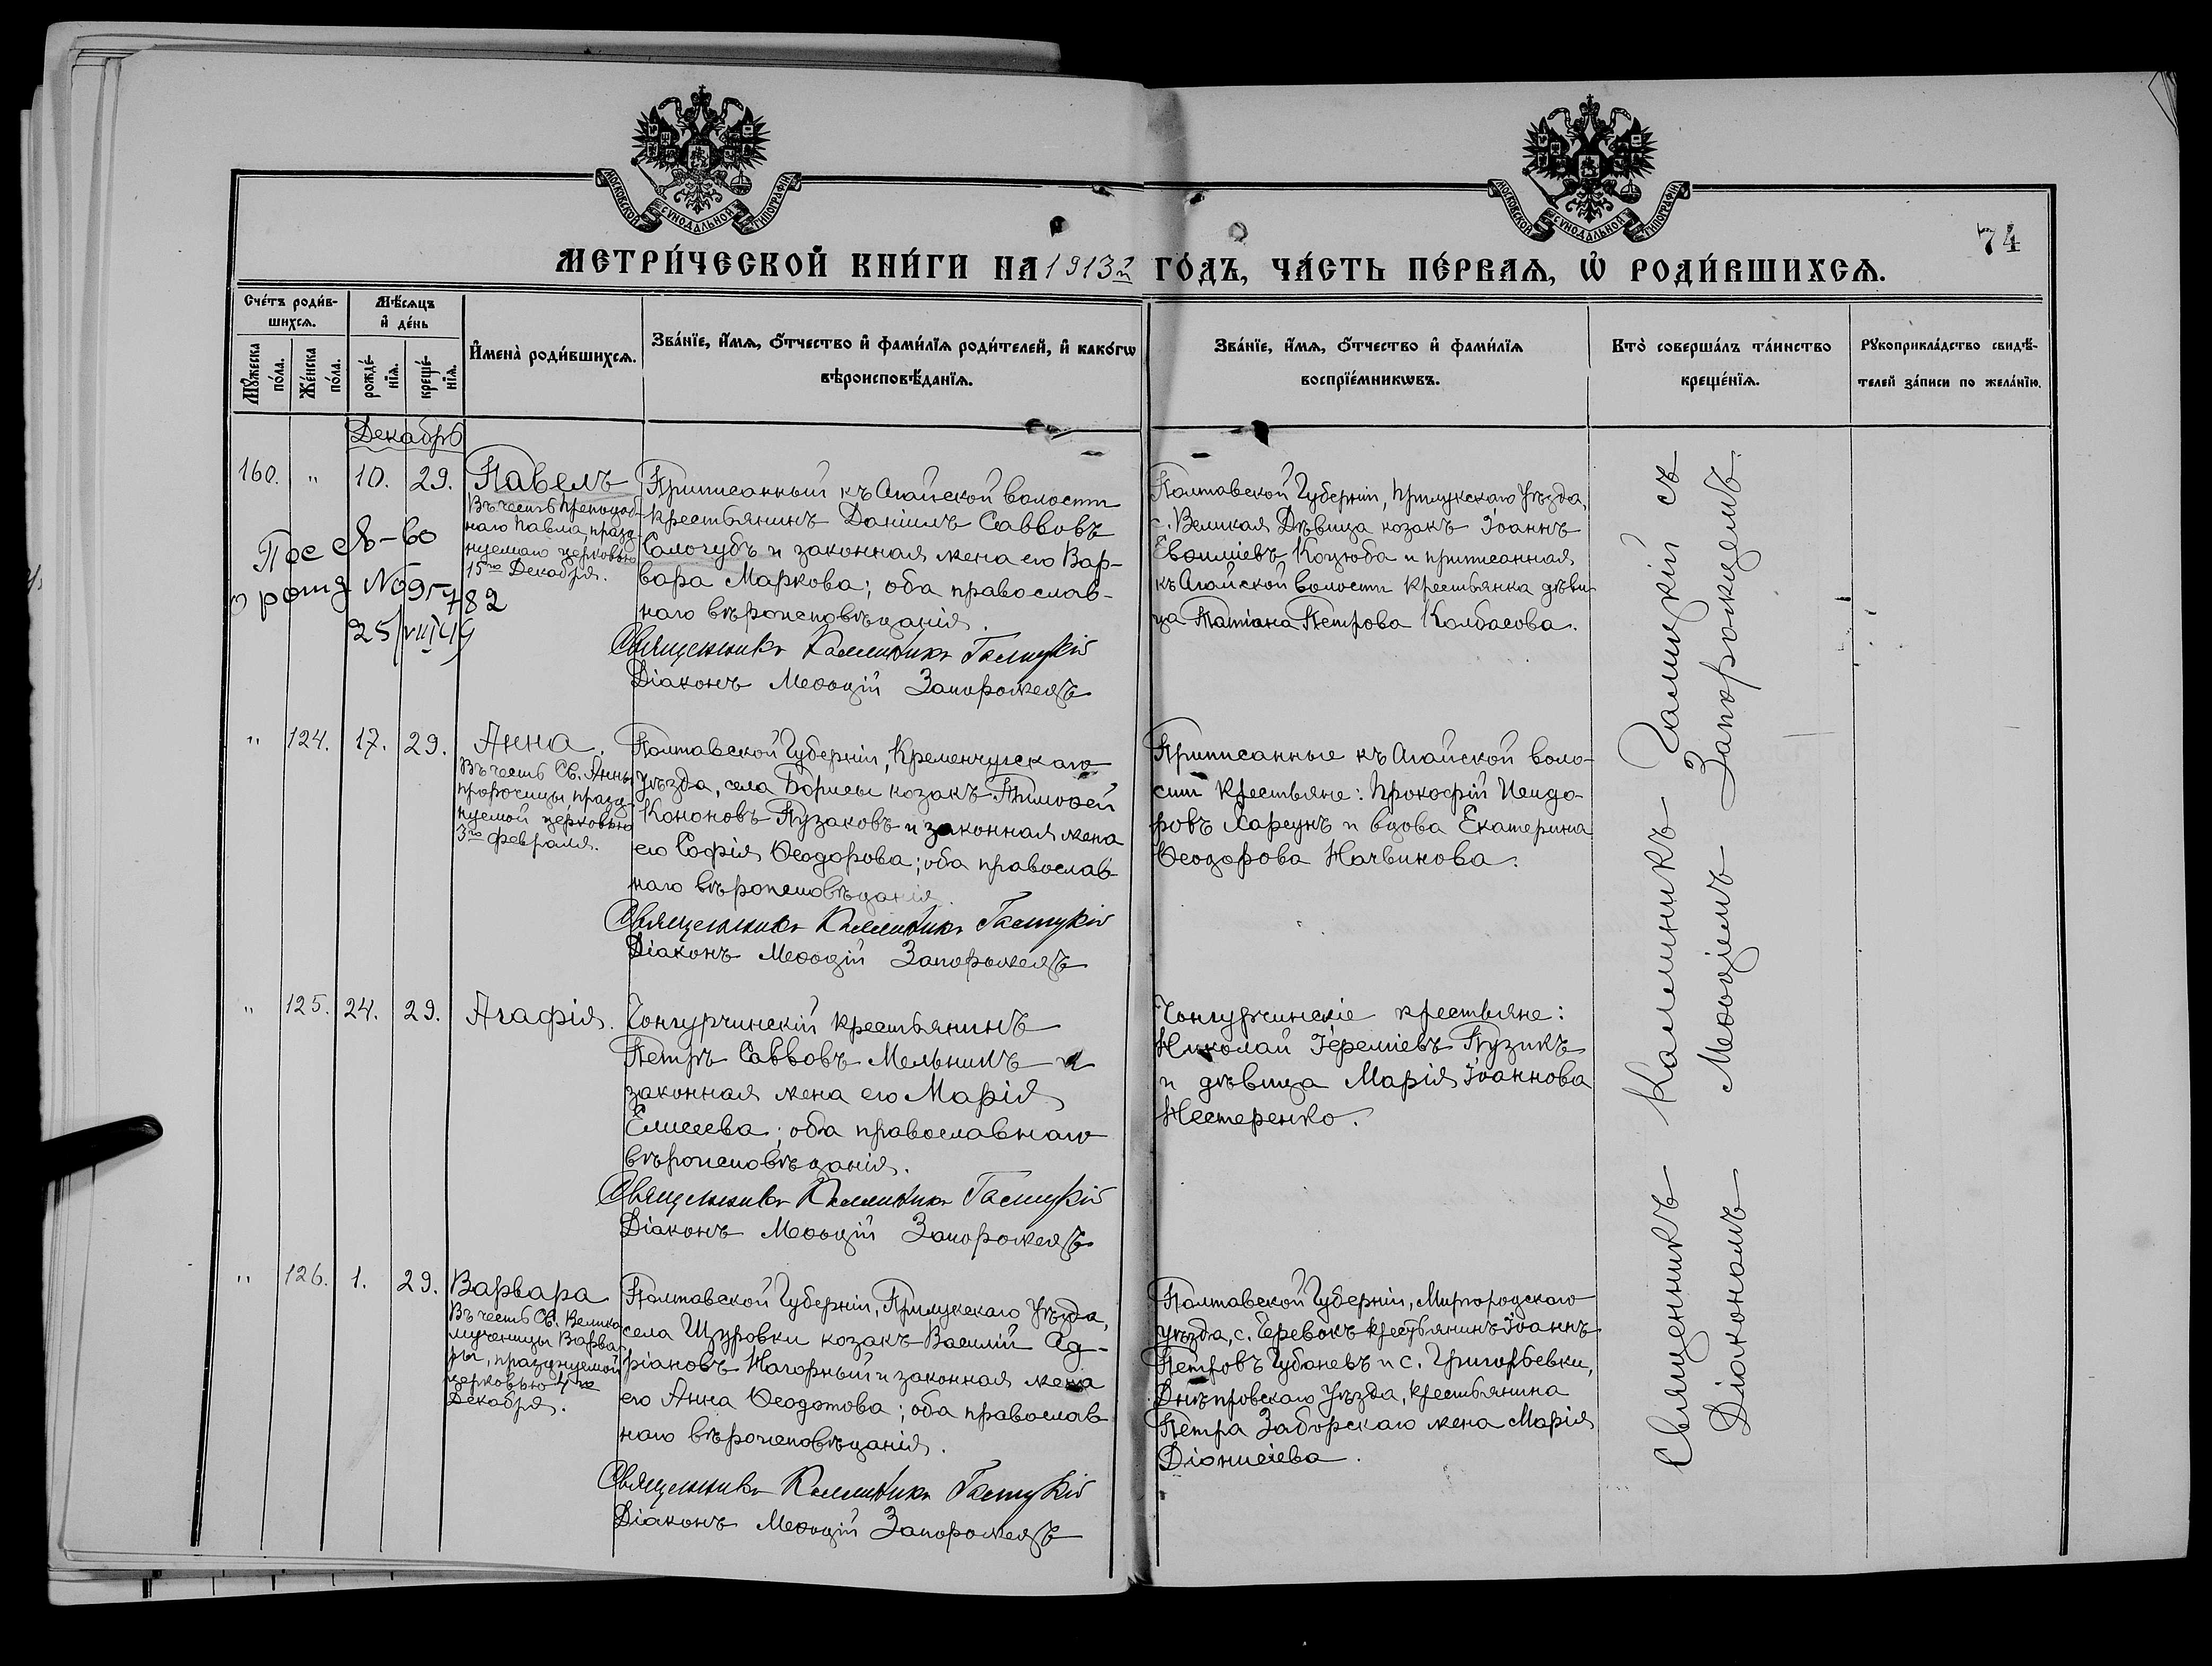 МОСКОВСКОЙ СѴНОДАЛЬНОЙ ТИПОГРАФІИ
МОСКОВСКОЙ СѴНОДАЛЬНОЙ ТИПОГРАФІИ
74
МЕТРИ́ЧЕСКОЙ КНИ́ГИ НА 1913 г. ГО́ДЪ, ЧА́СТЬ ПЕ́РВАѦ, Ѡ҆ РОДИ́ВШИХСѦ.
Сче́тъ роди́в-
шихсѧ.
Мѣ́сѧцъ
и҆ де́нь
Мꙋ́жеска по́ла.
Же́нска по́ла.
рожде́-нїѧ.
креще́-нїѧ.
И҆мена̀ роди́вшихсѧ.
Зва́нїе, и҆́мѧ, ѻ҆́тчество и҆ фами́лїѧ роди́телей, и҆ како́гѡ
вѣроисповѣ́данїѧ.
Зва́нїе, и҆́мѧ, ѻ҆́тчество и҆ фами́лїѧ
воспрїе́мникѡвъ.
Кто̀ соверша́лъ та́инство
креще́нїѧ.
Рꙋкоприкла́дство свидѣ́-
телей за́писи по жела́нїю.
Декабрь
160. " 10. 29. Павелъ
Въ честь преподоб-
наго Павла, празд-
нуемаго церковью
15го Декабря.
25/VIII 49
Приписанный къ Агайской волости
крестьянинъ Даніилъ Саввовъ
Салогубъ и законная жена его Вар-
вара Маркова; оба православ-
наго вѣроисповѣданія.
Священникъ Каллиникъ Галицкій
Діаконъ Меѳодій Запорожецъ
Полтавской Губерніи, Прилукскаго Уѣзда,
с. Великая Дѣвица козакъ Іоаннъ
Евѳиміевъ Коцюба и приписанная
къ Агайской волости крестьянка дѣви-
ца Татіана Петрова Колбасова.
" 124. 17. 29. Анна.
Въ честь Св. Анны
пророчицы, празд-
нуемой церковью
3го февраля.
Полтавской Губерніи, Кременчугскаго
Уѣзда, села Борисы козакъ Тимоѳей
Кононовъ Пузаковъ и законная жена
его Софія Ѳеодорова; оба православ-
наго вѣроисповѣданія.
Священникъ Каллиникъ Галицкій
Діаконъ Меѳодій Запорожецъ
Приписанные къ Агайской воло-
сти крестьяне: Прокофій Исидо-
ровъ Харсунъ и вдова Екатерина
Ѳеодорова Начвинова.
" 125. 24. 29. Агафія.
Чонгурчинскій крестьянинъ
Петръ Саввовъ Мельникъ и
законная жена его Марія
Елисеева; оба православнаго
вѣроисповѣданія.
Священникъ Каллиникъ Галицкій
Діаконъ Меѳодій Запорожецъ
Чонгурчинскіе крестьяне:
Николай Іереміевъ Пузикъ
и дѣвица Марія Іоаннова
Нестеренко.
" 126. 1. 29. Варвара
Въ честь Св. Велико-
мученицы Варва-
ры, празднуемой
церковью 4го
Декабря.
Полтавской Губерніи, Прилукскаго Уѣзда,
села Щуровки козакъ Василій Ад-
ріановъ Нагорный и законная жена
его Анна Ѳеодотова; оба православ-
наго вѣроисповѣданія.
Священникъ Каллиникъ Галицкій
Діаконъ Меѳодій Запорожецъ
Полтавской Губерніи, Миргородскаго
уѣзда, с. Черевокъ крестьянинъ Іоаннъ
Петровъ Губаневъ и с. Григорьевки,
Днѣпровскаго Уѣзда, крестьянина
Петра Заборскаго жена Марія
Діонисіева.
Священникъ Каллиникъ Галицкій съ
Діакономъ Меѳодіемъ Запорожцемъ.